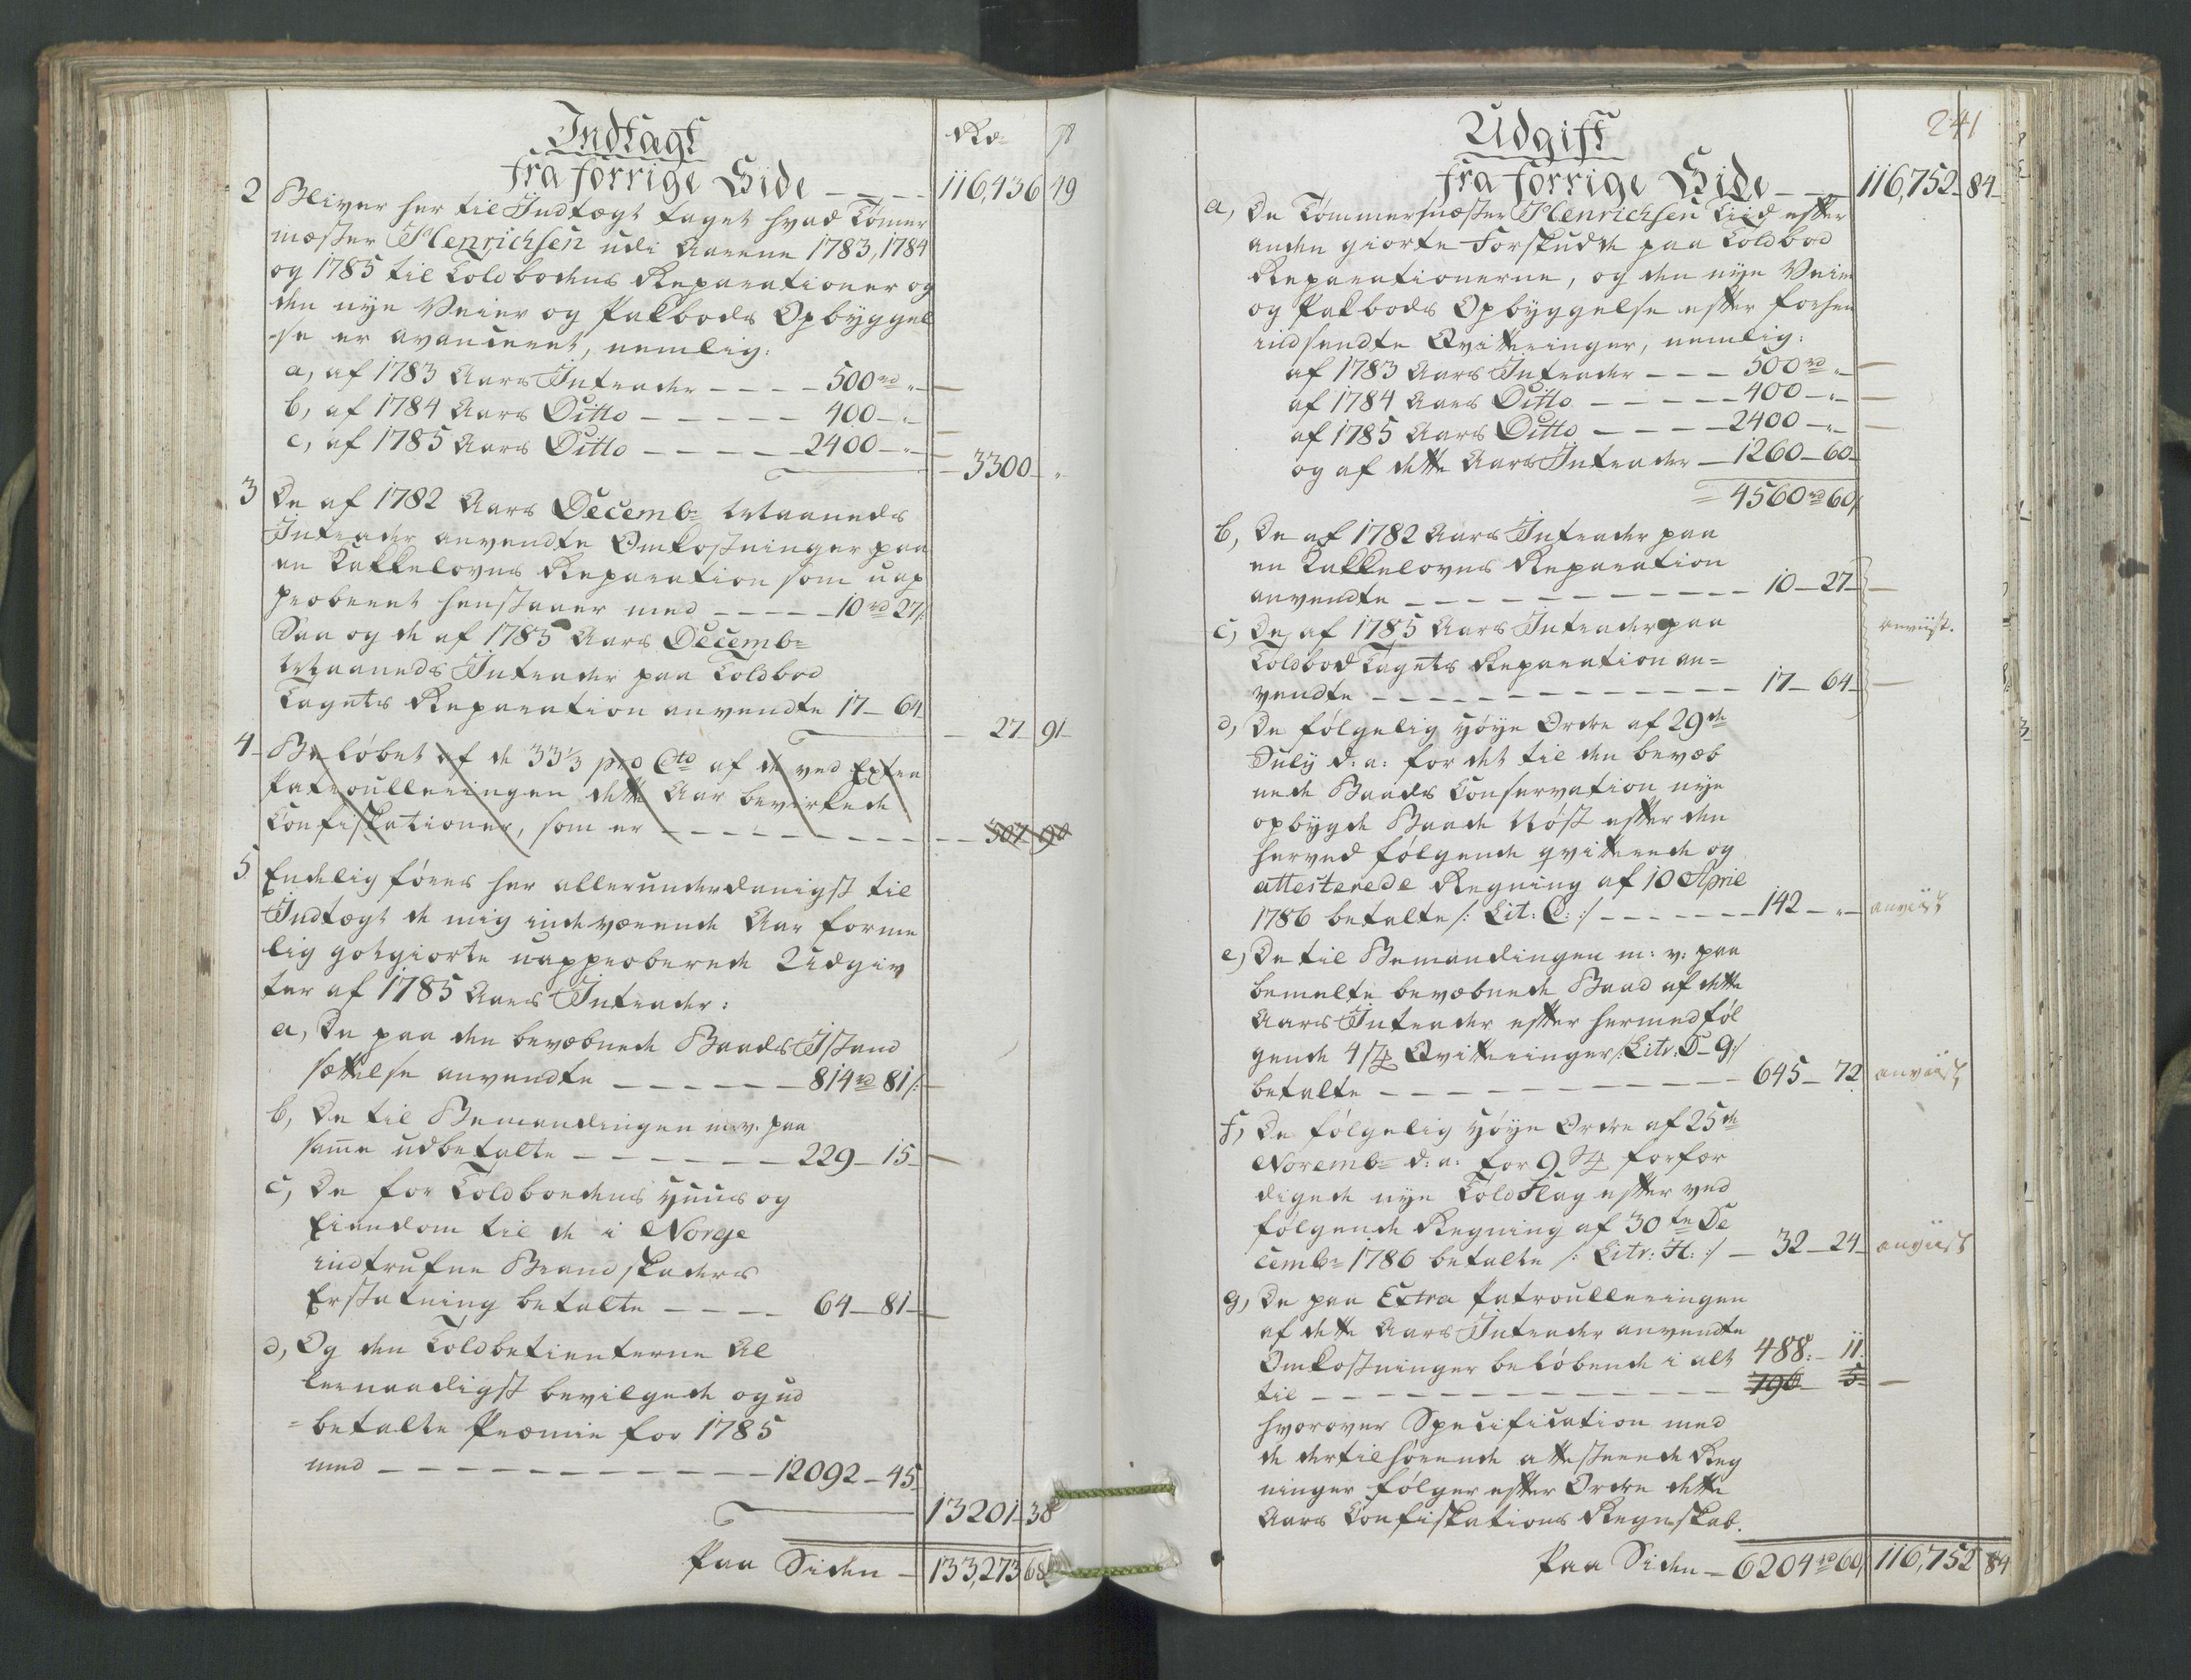 Indtægt
Rd. ß
fra forrige Side ---- 116,436 49
2 Bliver her til Indtægt taget hvad Tömer
mester Henrichsen udi Aarene 1783, 1784
og 1785 til Toldbodens Reparationer og
den nye Veier og Pakbods Opbyggel
-se er avanceret, nemlig:
a, af 1783 Aars Intrader ---- 500 rd „-
b, af 1784 Aars Ditto ----- 400 - „-
c, af 1785 Aars Ditto ----- 2400 - „-
3300 „
3 De af 1782 Aars Decembr Maaneds
Intrader anvendte Omkostninger paa
en Kakkelovns Reparation som uap
proberet henstaaer med ----- 10 rd 27 ß
Saa og de af 1785 Aars Decembr
Maaneds Intrader paa Toldbod
Tagets Reparation anvendte 17 - 64
- 27 - 91 -
4 - Beløbet af de 33 1/3 pro Cto af de ved Extra
Patroulleringen dette Aar bevirkede
Confiskationer, som er -------- 507 - 90
5 Endelig føres her allerunderdanigst til
Indtægt de mig indeværende Aar forme
lig godgiorte uapproberede Udgiv
ter af 1785 Aars Intrader:
a, De paa den bevæbnede Baads Istand
sættelse anvendte ------ 814 rd 81 ß
b, De til Bemandingen m.v. paa
samme udbetalte ------ 229 - 15 -
c, De for Toldboedens Huus og
Eiendom til de i Norge
indtrufne Brandskaders
Erstatning betalte ---- 64 - 81 -
d, Og den Toldbetienterne Al
lernaadigst bevilgede og ud
=betalte Præmie for 1785
med ------------ 12092 - 45
13201 - 38
Paa Siden - 133,273 68
241
Udgift
fra forrige Side --- 116,752 - 84 -
a, De Tömmermester Henrichsen Tiid efter
anden giorte Forskudde paa Toldbod
Reparationerne, og den nye Veier
og Pakbods Opbyggelse efter forhen
indsendte Qvitteringer, nemlig:
af 1783 Aars Intrader --- 500 rd „-
af 1784 Aars Ditto ----- 400 - „-
af 1785 Aars Ditto ---- 2400 - „-
og af dette Aars Intrader - 1260 - 60 -
= 4560 rd 60 ß
b, De af 1782 Aars Intrader paa
en Kakkelovns Reparation
anvendte ------------ 10 - 27 -
c, De af 1785 Aars Intrader paa
anviist.
Toldbod Tagets Reparation an=
vendte ------------ 17 - 64 -
d, De følgelig Høye Ordre af 29de
July d: a: for det til den bevæb
nede Baads Conservation nye
opbygde Baade Nöst efter den
herved følgende qvitterede og
attesterede Regning af 10 April
1786 betalte /: Lit: C: :/ ------ 142 - „ - anviist
e, De til Bemandingen m: v: paa
bemelte bevæbnede Baad af dette
Aars Intrader efter hermedføl
gende 4 Qvitteringer /: Litr: D - G :/
betalte ------------ 645 - 72 anviist
f, De følgelig Høye Ordre af 25de
Novembr d: a: for 9 forfær
digede nye Told Flag efter ved
følgende Regning af 30te De
cembr 1786 betalte /: Litr: H: :/ - 32 - 24 - anviist
g, De paa Extra Patroulleringen
af dette Aars Intrader anvendte
Omkostninger beløbende i alt 488: - 11.
til -------------- 796 - 5 -
hvorover Specification med
de dertil hørende attesterede Reg
ninger følger efter Ordre dette
Aars Confiskations Regnskab.
Paa Siden - 6204 rd 60 ß 116,752 84